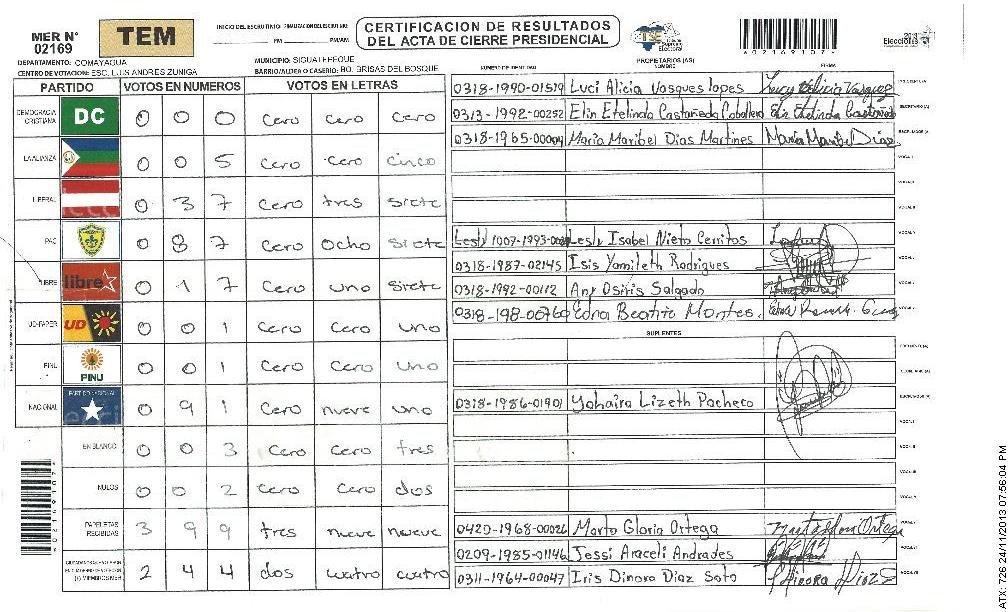 MER N° 02169
TEM
INICIO DEL ESCRUTINIO:
PM
PM/AM
CERTIFICACION DE RESULTADOS
DEL ACTA DE CIERRE PRESIDENCIAL
TSE
Tribunal Supremo Electoral
0216910?
Elecciones
DEPARTAMENTO: COMAYAGUA
MUNICIPIO: SIGUATEPEQUE
CENTRO DE VOTACION: ESC. LUIS ANDRES ZUNIGA
BARRIO/ALDEA O CASERIO: BO. BRISAS DEL BOSQUE
PARTIDO VOTOS EN NUMEROS VOTOS EN LETRAS
DEMOCRACIA CRISTIANA DC 0 0 0 cero cero cero
LA ALIANZA 0 0 5 cero cero cinco
LIBERAL 0 3 7 cero tres siete
PAC 0 8 7 cero ocho siete
LIBRE libre 0 1 7 cero uno siete
UD-FAPER UD 0 0 1 cero cero uno
PINU PINU 0 0 1 cero cero uno
NACIONAL PARTIDO NACIONAL 0 9 1 cero nueve uno
EN BLANCO 0 0 3 cero cero tres
NULOS 0 0 2 cero cero dos
PAPELETAS RECIBIDAS 3 9 9 tres nueve nueve
2 4 4 dos cuatro cuatro
NUMERO DE IDENTIDAD
PROPIETARIOS (AS)
NOMBRE
FIRMA
0318-1990-01519 Luci Alicia Vasques lopes
0313-1992-00252 Elin Etelinda Castañeda Caballero
0318-1965-00004 Maria Maribel Dias Martines Maria Maribel Dias
Lesly 1007-1993-00 Lesly Isabel Nieto Cerritos
0318-1987-02145 Isis Yamileth Rodrigues
0318-1992-00112 Any Osiris Salgado
0318-198-00760 Edna Beatriz Montes.
SUPLENTES
0318-1986-01901 Yohaira Lizeth Pacheco
0420-1968-00026 Marta Gloria Ortega
0209-1985-01146 Jessi Araceli Andrades
0311-1964-00047 Iris Dinora Diaz Soto
ATX 726 24/11/2013 07:56:04 PM